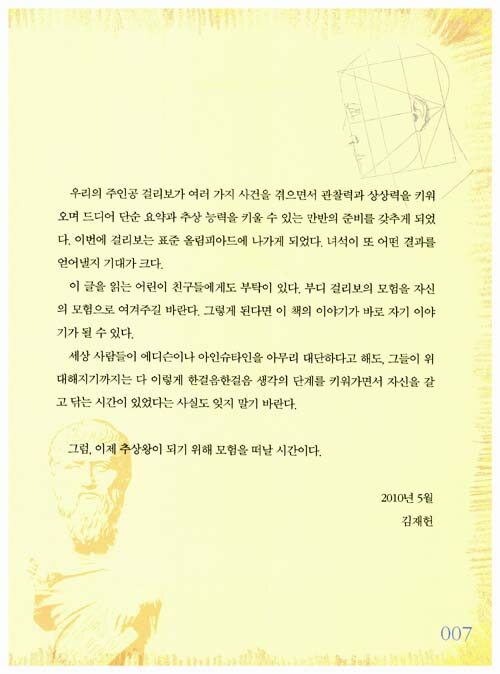 우리의 주인공 걸리보가 여러 가지 사건을 겪으면서 관찰력과 상상력을 키워
오며 드디어 단순 요약과 추상 능력을 키울 수 있는 만반의 준비를 갖추게 되었
다. 이번에 걸리보는 표준 올림피아드에 나가게 되었다. 녀석이 또 어떤 결과를
얻어낼지 기대가 크다.
이 글을 읽는 어린이 친구들에게도 부탁이 있다. 부디 걸리보의 모험을 자신
의 모험으로 여겨주길 바란다. 그렇게 된다면 이 책의 이야기가 바로 자기 이야
기가 될 수 있다.
세상 사람들이 에디슨이나 아인슈타인을 아무리 대단하다고 해도, 그들이 위
대해지기까지는 다 이렇게 한걸음한걸음 생각의 단계를 키워가면서 자신을 갈
고 닦는 시간이 있었다는 사실도 잊지 말기 바란다.
그럼, 이제 추상왕이 되기 위해 모험을 떠날 시간이다.
2010년 5월
김재헌
007